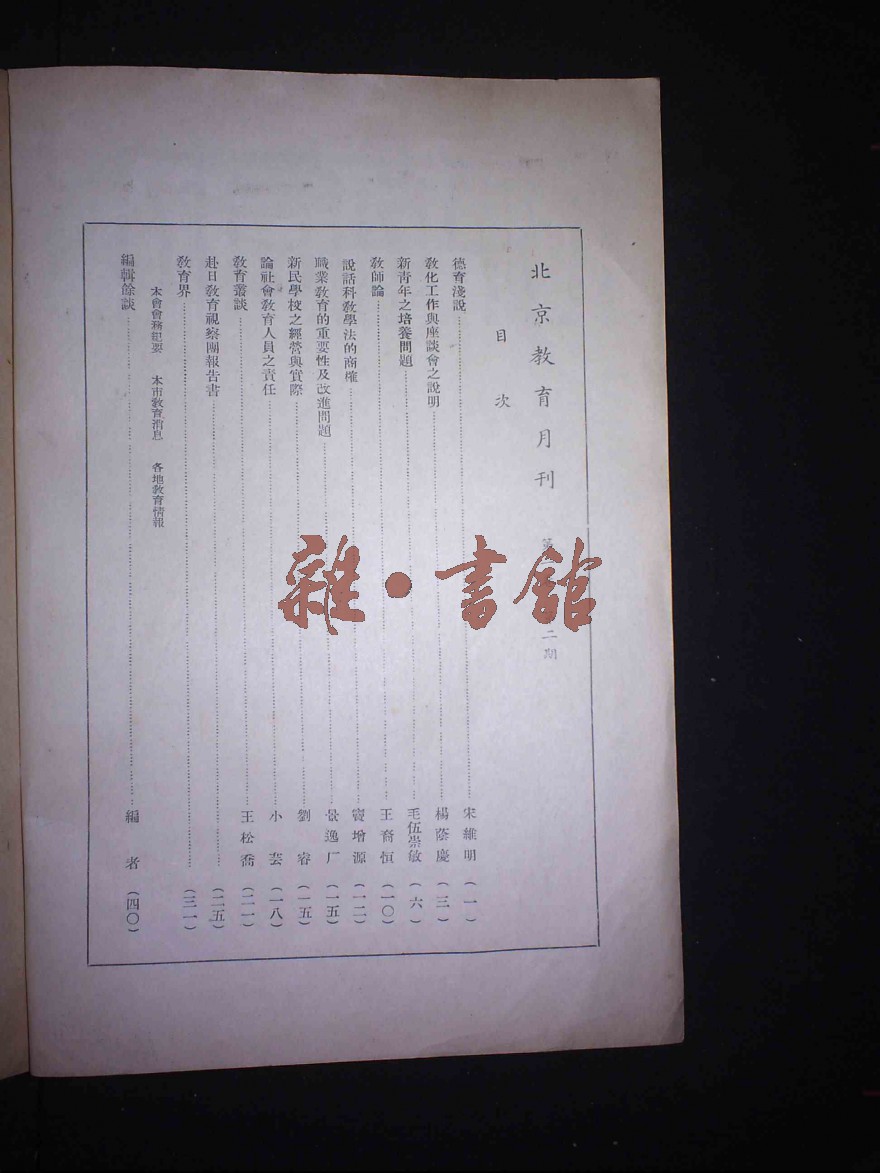 北京教育月刊
第
二期
目次
德育淺說 宋維明 (一)
教化工作與座談會之說明 楊蔭慶 (三)
新靑年之培養問題 毛伍崇敏 (六)
教師論 王裔恒 (一〇)
說話科教學法的商榷 竇增源 (一二)
職業教育的重要性及改進問題 逸厂 (一五)
新民學校之經營與實際 劉睿 (一五)
論社會教育人員之責任 小芸 (一八)
教育叢談 王松喬 (二一)
赴日教育視察團報告書 (二五)
教育界 (三一)
本會會務紀要 本市教育消息 各地教育情報
編輯餘談 編者 (四〇)
雜·書館